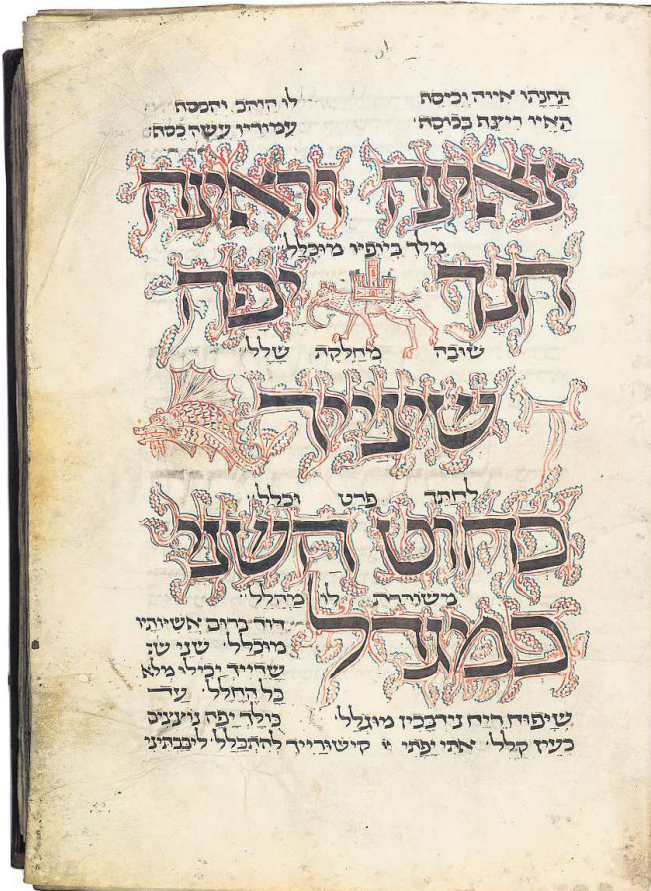 תחנתהו אייה וכיסה לו היהב והכסה
האיו ריצת בכוסה עמודיו עשה כסה
צאינה וראינה
מלך ביופיו מוכלל
הנך יפה
שובה מחלקת שלל
שיניך
לחתך פרט וכלל
כחוט השני
משוררת לו מהלל
כמגדל
דוד ברום אשיותיו
מוכלל שני ש
שדייך יכילו מלא
כל החלל עד
שיפוח ריח נירבכין מוגלל כולך יפה נוצצים
כעין קלל אתי יפתי קישורייך להתכלל ליבבתיני